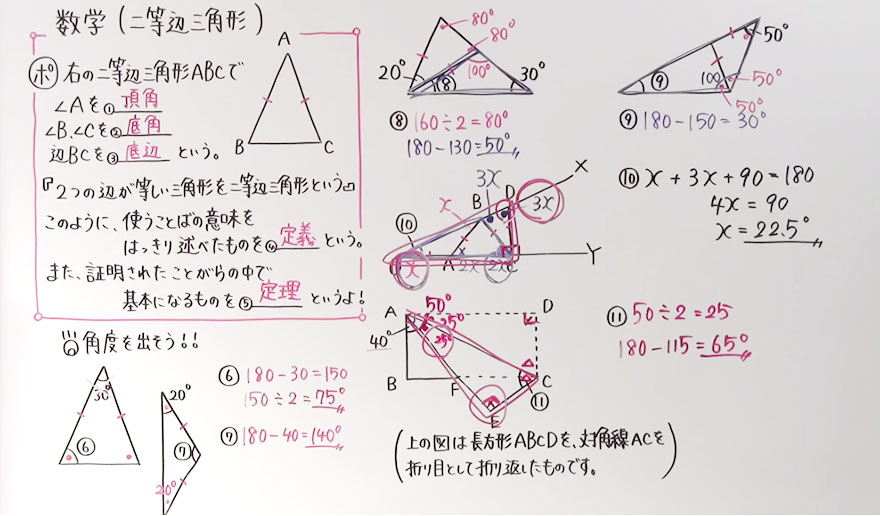 数学(二等辺三角形)
ポ 右の二等辺三角形ABCで
∠Aを①頂角
∠B、∠Cを②底角
辺BCを③底辺 という。
『2つの辺が等しい三角形を二等辺三角形という』
このように、使うことばの意味を
はっきり述べたものを④定義 という。
また、証明されたことがらの中で
基本になるものを⑤定理 というよ!
A
B
C
角度を出そう!!
30°
⑥
20°
⑦
20°
⑥ 180-30=150
150÷2=75°
⑦ 180-40=140°
80°
80°
20°
⑧
100°
30°
⑧ 160÷2=80°
180-130=50°
50°
⑨
100
50°
50°
⑨ 180-150=30°
X
3X
B
D
3X
x
⑩
x
A
2x
2x
C
Y
⑩ x+3x+90=180
4x=90
x=22.5°
A
50°
D
25°
40°
25°
B
F
C
E
⑪
⑪ 50÷2=25
180-115=65°
(上の図は長方形ABCDを、対角線ACを
折り目として折り返したものです。)